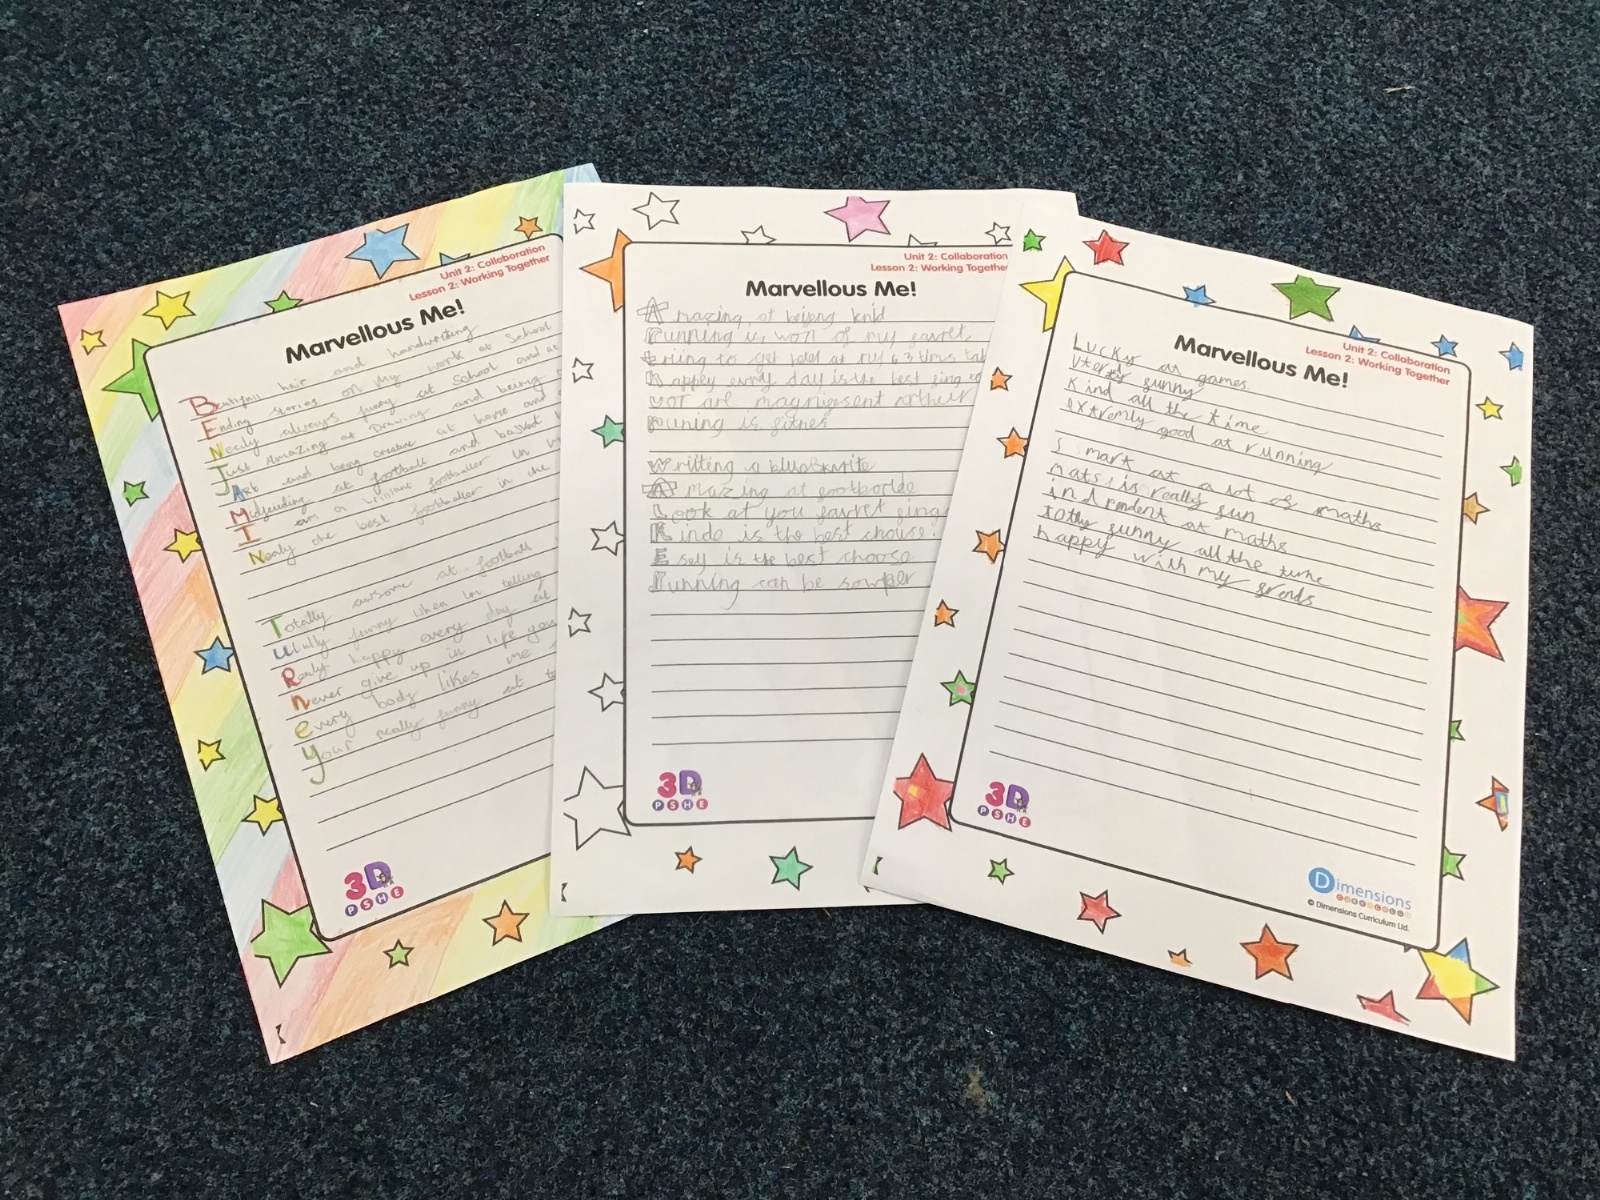 Unit 2: Collaboration
Lesson 2: Working Together
Marvellous Me!
Beautifull hair and handwriting
Ending stories on My work at School
Nearly always funny at School and at
Just Amazing at Drawing and being
Art and being creative at home and
Midfeilding at football and basket
I am a brilliant footballer in
Nearly the best footballer in the
Totally awsome at football
funny when in telling
Realy happy every day at
Never give up in life you
every body likes me
your really funny at
3D
PSHE
Unit 2: Collaboration
Lesson 2: Working Together
Marvellous Me!
Amazing at
running is of my favret
to get at my 63 times
Happey every day is the best
are magnifesent Arthur
runing is
Writting a
Amazing at
Look at you favret
Kinde is the best
is the best choose
running can be
3D
PSHE
Unit 2: Collaboration
Lesson 2: Working Together
Marvellous Me!
Lucky at games
funny
Kind all the time
extremly good at running
Smart at a lot of maths
mats is really fun
indpendent at maths
totly funny all the time
happy with my frends
3D
PSHE
Dimensions
CURRICULUM
© Dimensions Curriculum Ltd.